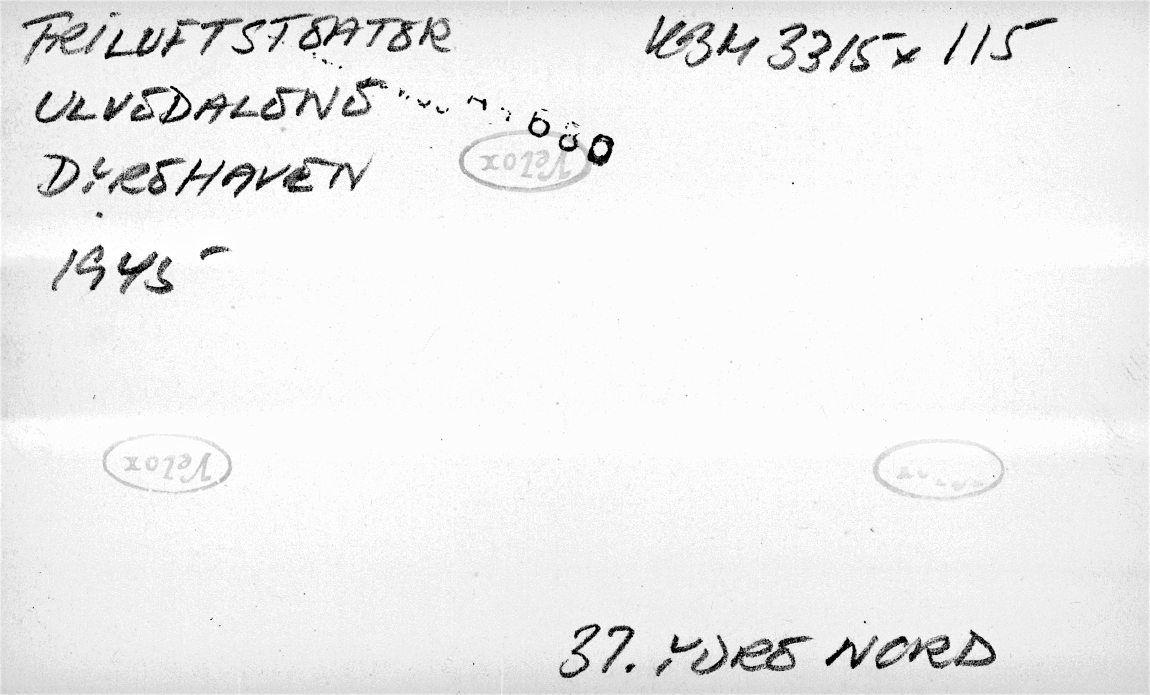 FRILUFTSTEATER
ULVEDALENE
DYREHAVEN
1945
KBM 3315 x 115
680
Velox
Velox
37. YDRE NORD